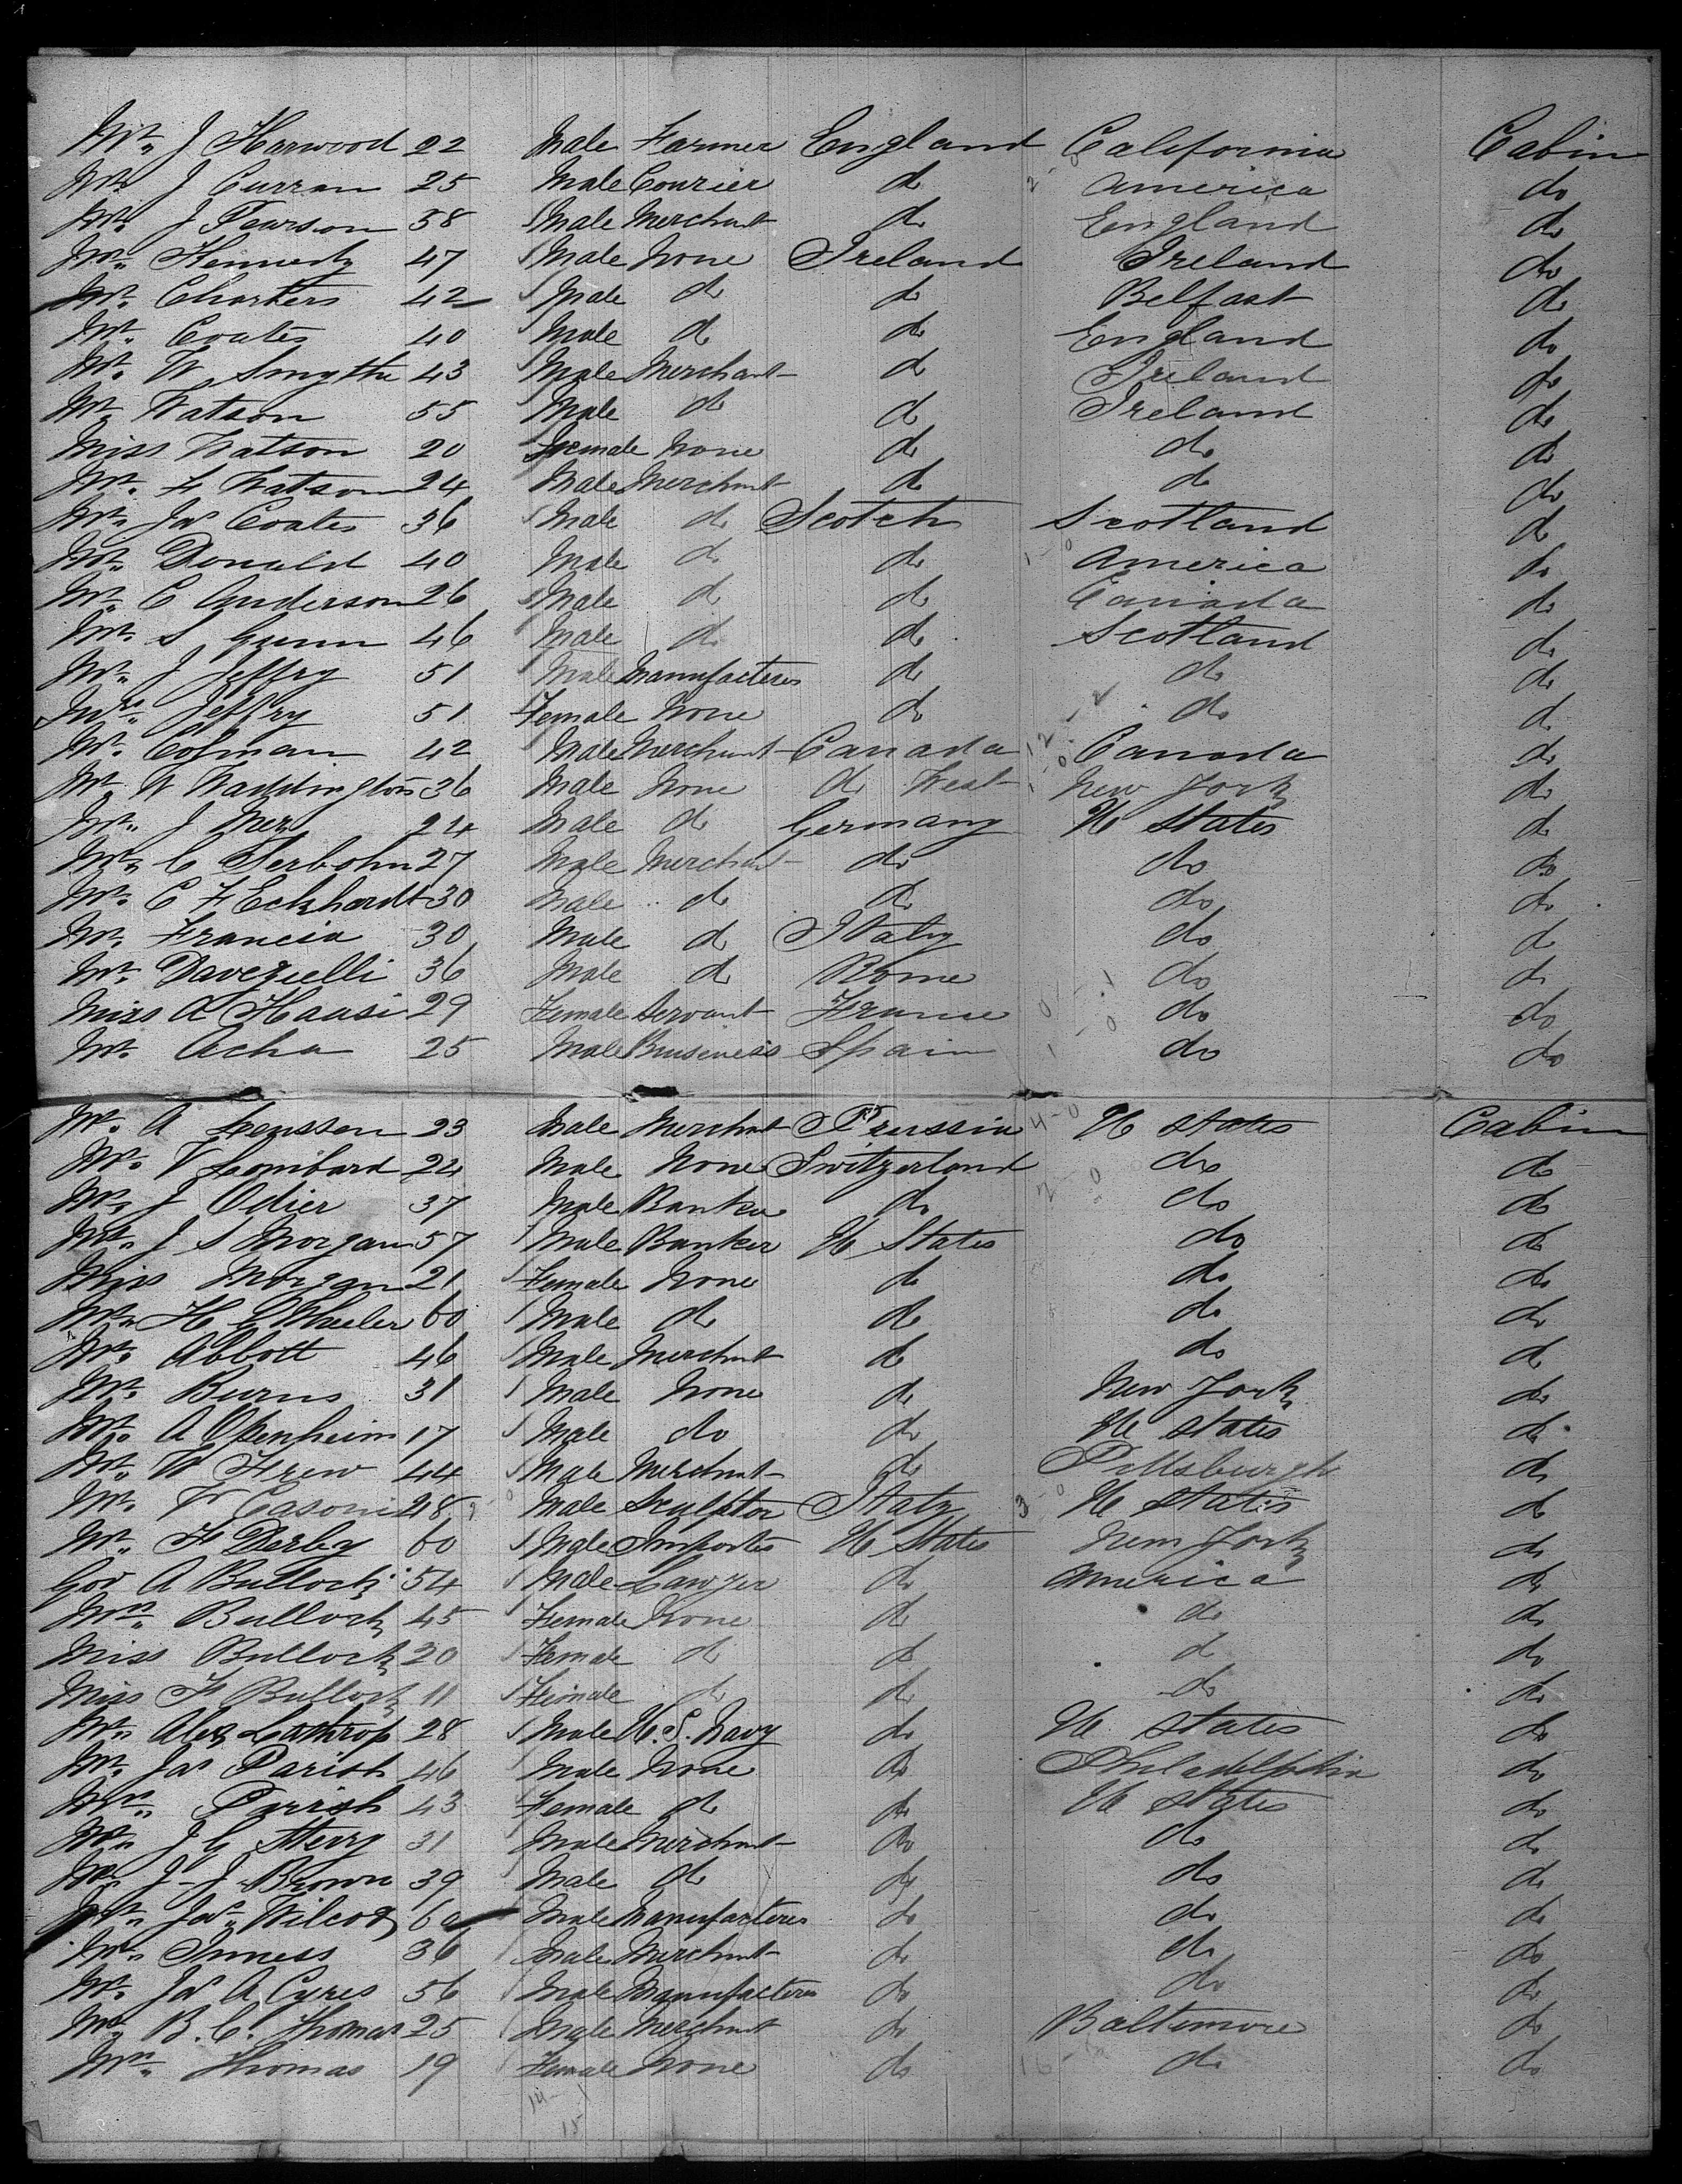 Mr. J Harwood 22 Male Farmer England California Cabin
Mr. J Curran 25 Male Courier do America do
Mr. J Pearson 38 Male Merchant do England do
Mr. Kennedy 47 Male None Ireland Ireland do
Mr. Charters 42 Male do do Belfast do
Mr. Coates 40 Male do do England do
Mr. W Smythe 43 Male Merchant do Ireland do
Mr. Watson 55 Male do do Ireland do
Miss Watson 20 Female None do do do
Mr. F Watson 24 Male Merchant do do do
Mr. Jas Coates 36 Male do Scotch Scotland do
Mr. Donald 40 Male do do America do
Mr. C Anderson 26 Male do do Canada do
Mr. S Gunn 46 Male do do Scotland do
Mr. J Jeffry 51 Male Manufacteres do do do
Mrs. Jeffry 51 Female None do do do
Mr. Colman 42 Male Merchant Canada Canada do
Mr. W Waddington 36 Male None do West New York do
Mr. J 24 Male do Germany U States do
Mr. C Terbohm 27 Male Merchant do do do
Mr. C F Eckhardt 30 Male do do do do
Mr. Francia 30 Male do Italy do do
Mr. 36 Male do Rome do do
Miss A Haasi 29 Female Servant France do do
Mr. Acha 25 Male Buiseness Spain do do
Mr. A 23 Male Merchant Prussia 4-0 U States Cabin
Mr. V Lombard 24 Male None Switzerland do do
Mr. J Odier 37 Male Banker do do do
Mr. J S Morgan 57 Male Banker U States do do
Miss Morgan 21 Female None do do do
Mr. H C Wheeler 60 Male do do do do
Mr. Abbott 46 Male Merchant do do do
Mr. Burns 31 Male None do New York do
Mr. A Openheim 17 Male do do U States do
Mr. W Frew 44 Male Merchant do Pittsburgh do
Mr. V Casoni 28 Male Sculptor Italy 3-0 U States do
Mr. F Derby 60 Male Importer U States New York do
Gov A Bullock 54 Male Lawyer do America do
Mrs. Bullock 45 Female None do do do
Miss Bullock 20 Female do do do do
Miss F Bullock 11 Female do do do do
Mr. Alex Lathrop 28 Male U.S. Navy do U States do
Mr. Jas Parish 46 Male None do Philadelphia do
Mrs. Parrish 43 Female do do U States do
Mr. J G Sterry 31 Male Merchant do do do
Mr. J J Brown 39 Male do do do do
Mr. Jas. Wilcox 60 Male Manufacteres do do do
Mr. Inness 36 Male Merchant do do do
Mr. Jas A Cyres 56 Male Manufacteres do do do
Mr. B. C. Thomas 25 Male Merchant do Baltimore do
Mrs. Thomas 19 Female None do do do